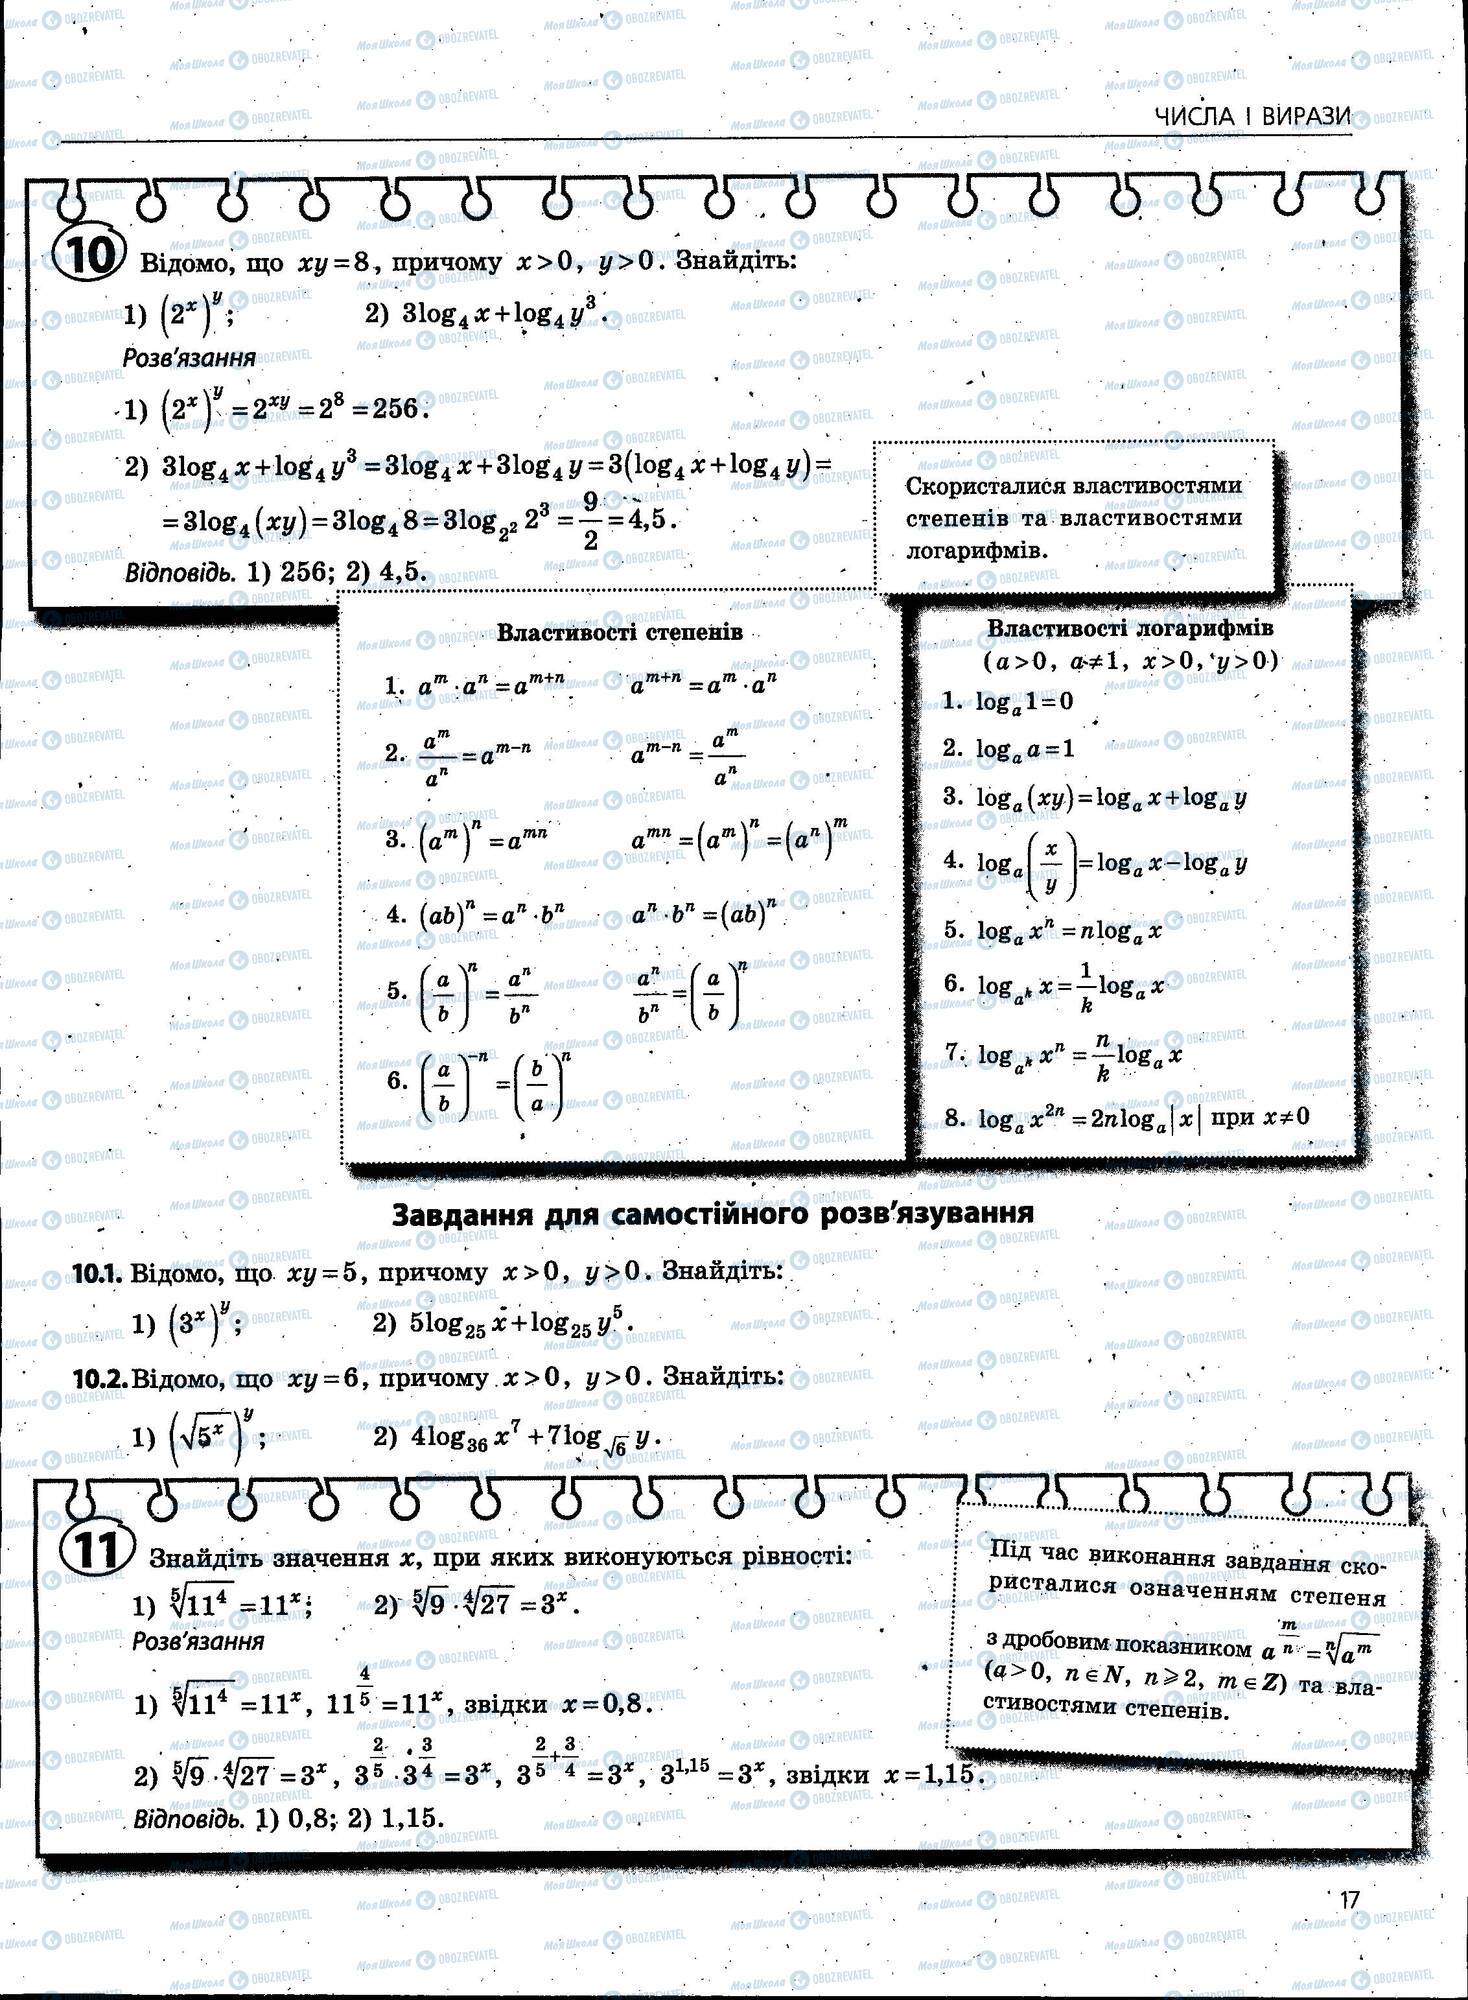 ЧИСЛА І ВИРАЗИ
10 Відомо, що xy=8, причому x>0, y>0. Знайдіть:
1) (2^x)^y; 2) 3log_4 x+log_4 y^3.
Розв'язання
1) (2^x)^y =2^(xy) =2^8 =256.
2) 3log_4 x+log_4 y^3 =3log_4 x+3log_4 y=3(log_4 x+log_4 y)=
=3log_4 (xy)=3log_4 8=3log_(2^2) 2^3 =9/2=4,5.
Відповідь. 1) 256; 2) 4,5.
Скористалися властивостями
степенів та властивостями
логарифмів.
Властивості степенів
1. a^m ·a^n =a^(m+n) a^(m+n) =a^m ·a^n
2. a^m/a^n =a^(m−n) a^(m−n) =a^m/a^n
3. (a^m)^n =a^(mn) a^(mn) =(a^m)^n =(a^n)^m
4. (ab)^n =a^n ·b^n a^n ·b^n =(ab)^n
5. (a/b)^n =a^n/b^n a^n/b^n =(a/b)^n
6. (a/b)^(−n) =(b/a)^n
Властивості логарифмів
(a>0, a≠1, x>0, y>0)
1. log_a 1=0
2. log_a a=1
3. log_a (xy)=log_a x+log_a y
4. log_a (x/y)=log_a x−log_a y
5. log_a x^n =nlog_a x
6. log_(a^k) x=1/k log_a x
7. log_(a^k) x^n =n/k log_a x
8. log_a x^(2n) =2nlog_a |x| при x≠0
Завдання для самостійного розв'язування
10.1. Відомо, що xy=5, причому x>0, y>0. Знайдіть:
1) (3^x)^y; 2) 5log_25 x+log_25 y^5.
10.2. Відомо, що xy=6, причому x>0, y>0. Знайдіть:
1) (√(5^x))^y; 2) 4log_36 x^7 +7log_(√6) y.
11 Знайдіть значення x, при яких виконуються рівності:
1) ⁵√(11^4) =11^x; 2) ⁵√9 ·⁴√27 =3^x.
Розв'язання
1) ⁵√(11^4) =11^x, 11^(4/5) =11^x, звідки x=0,8.
2) ⁵√9 ·⁴√27 =3^x, 3^(2/5) ·3^(3/4) =3^x, 3^(2/5+3/4) =3^x, 3^(1,15) =3^x, звідки x=1,15.
Відповідь. 1) 0,8; 2) 1,15.
Під час виконання завдання ско-
ристалися означенням степеня
з дробовим показником a^(m/n) =ⁿ√(a^m)
(a>0, n∈N, n⩾2, m∈Z) та вла-
стивостями степенів.
17
МояШкола OBOZREVATEL